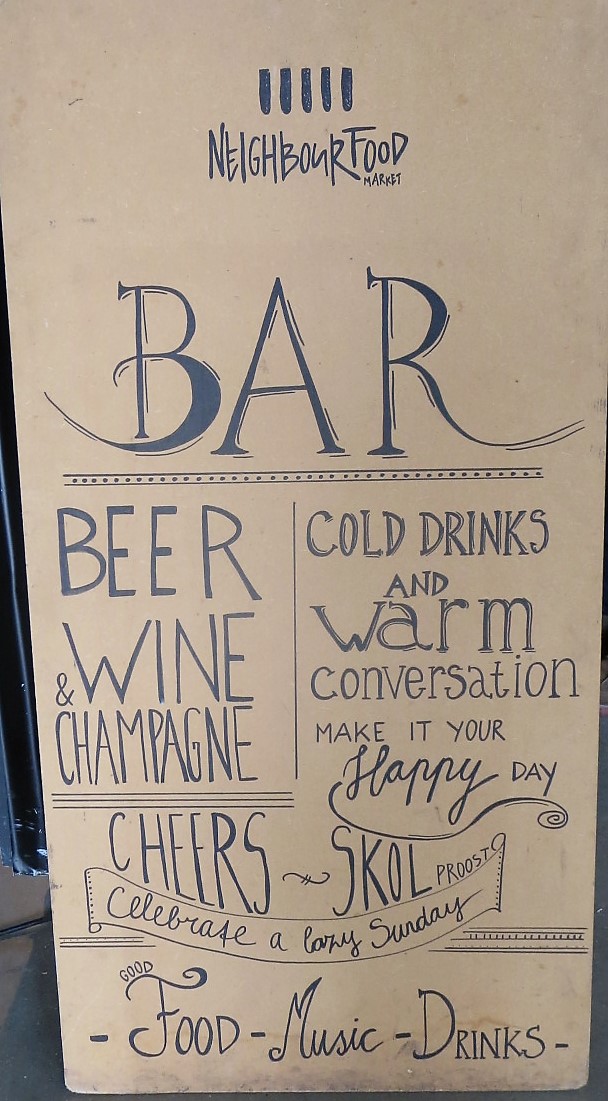 NEIGHBOURFOOD
MARKET
BAR
BEER
WINE
& CHAMPAGNE
COLD DRINKS
AND
warm
conversation
MAKE IT YOUR
Happy DAY
CHEERS ~ SKOL PROOST
Celebrate a lazy Sunday
GOOD
- FOOD - Music - DRINKS -